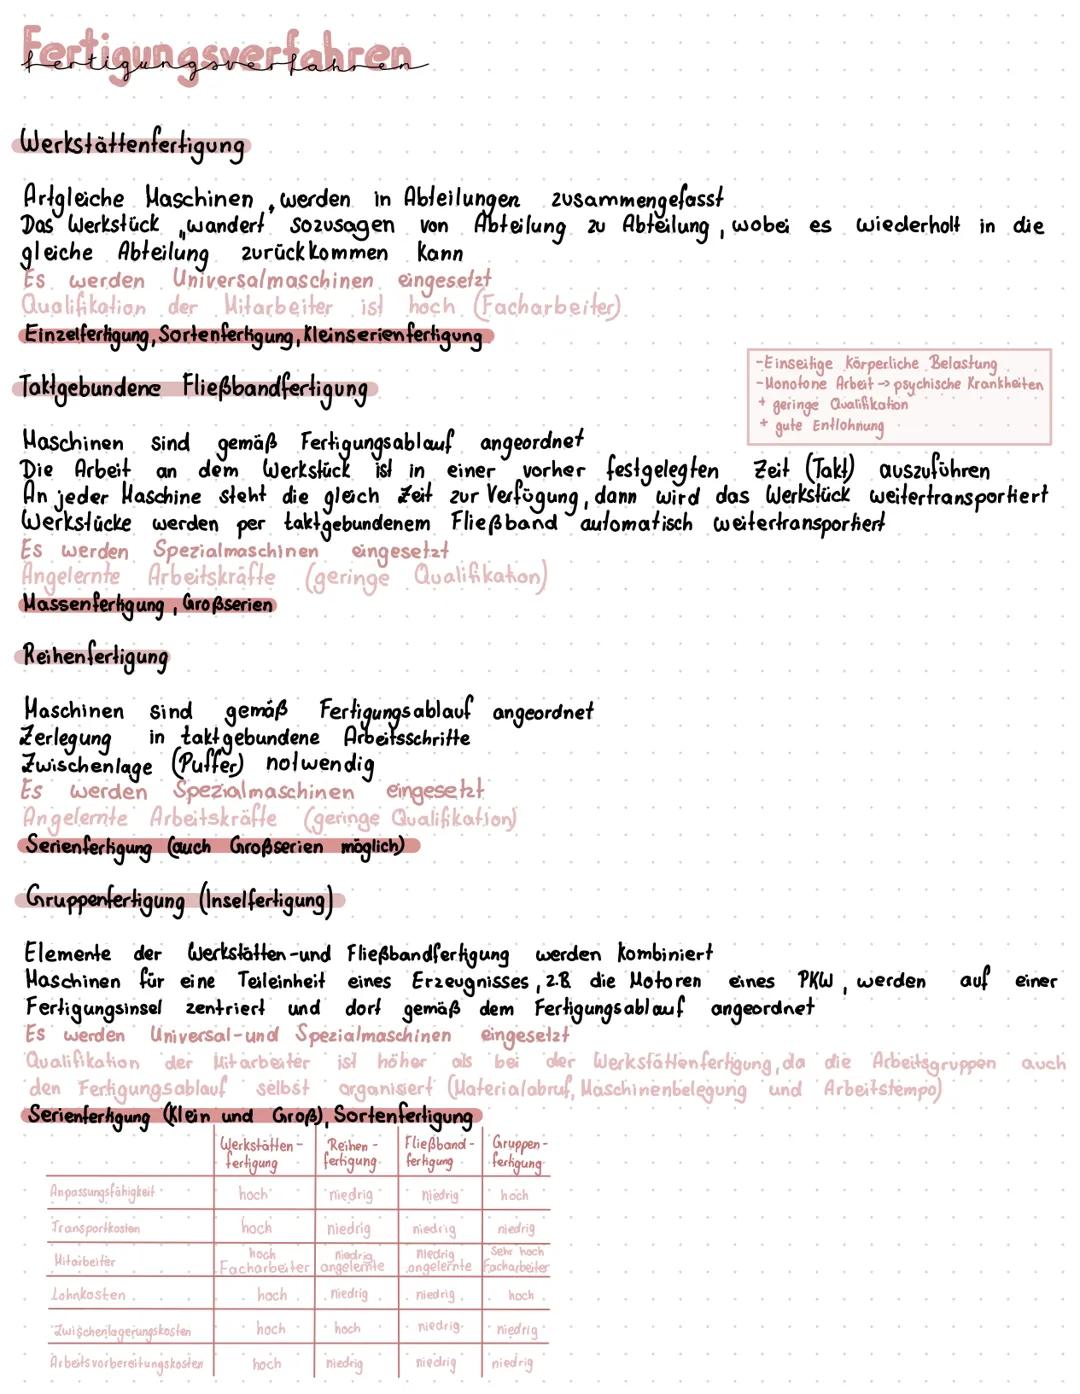 Fertigungsverfahren
fertigungsverfahren
Werkstättenfertigung
Artgleiche Maschinen, werden in Abteilungen zusammengefasst
Das Werkstück „wandert" sozusagen von Abteilung zu Abteilung, wobei es wiederholt in die
gleiche Abteilung zurückkommen kann
Es werden Universalmaschinen eingesetzt
Qualifikation der Mitarbeiter ist hoch (Facharbeiter)
Einzelfertigung, Sortenfertigung, Kleinserienfertigung
-Einseitige Körperliche Belastung
-Monotone Arbeit → psychische Krankheiten
+ geringe Qualifikation
+ gute Entlohnung
Taktgebundene Fließbandfertigung
Maschinen sind gemäß Fertigungsablauf angeordnet
Die Arbeit an dem Werkstück ist in einer vorher festgelegten Zeit (Takt) auszuführen
An jeder Maschine steht die gleich Zeit zur Verfügung, dann wird das Werkstück weitertransportiert
Werkstücke werden per taktgebundenem Fließband automatisch weitertransportiert
Es werden Spezialmaschinen eingesetzt
Angelernte Arbeitskräfte (geringe Qualifikation)
Massenfertigung, Großserien
Reihenfertigung
Maschinen sind gemäß Fertigungsablauf angeordnet
Zerlegung in taktgebundene Arbeitsschritte
Zwischenlage (Puffer) notwendig
Es werden Spezialmaschinen eingesetzt
Angelernte Arbeitskräfte (geringe Qualifikation)
Serienfertigung (auch Großserien möglich)
Gruppenfertigung (Inselfertigung)
Elemente der Werkstätten-und Fließbandfertigung werden kombiniert
Maschinen für eine Teileinheit eines Erzeugnisses, z.B. die Motoren eines PKW, werden auf einer
Fertigungsinsel zentriert und dort gemäß dem Fertigungsablauf angeordnet
Es werden Universal-und Spezialmaschinen eingesetzt
Qualifikation der Mitarbeiter ist höher als bei der Werkstättenfertigung, da die Arbeitsgruppen auch
den Fertigungsablauf selbst organisiert (Materialabruf, Maschinenbelegung und Arbeitstempo)
Serienfertigung (Klein und Groß), Sortenfertigung
Werkstätten-fertigung Reihen-fertigung Fließband-fertigung Gruppen-fertigung
Anpassungsfähigkeit hoch niedrig niedrig hoch
Transportkosten hoch niedrig niedrig niedrig
Mitarbeiter hoch Facharbeiter niedrig angelernte niedrig angelernte Sehr hoch Facharbeiter
Lohnkosten hoch niedrig niedrig hoch
Zwischenlagerungskosten hoch hoch niedrig niedrig
Arbeitsvorbereitungskosten hoch niedrig niedrig niedrig